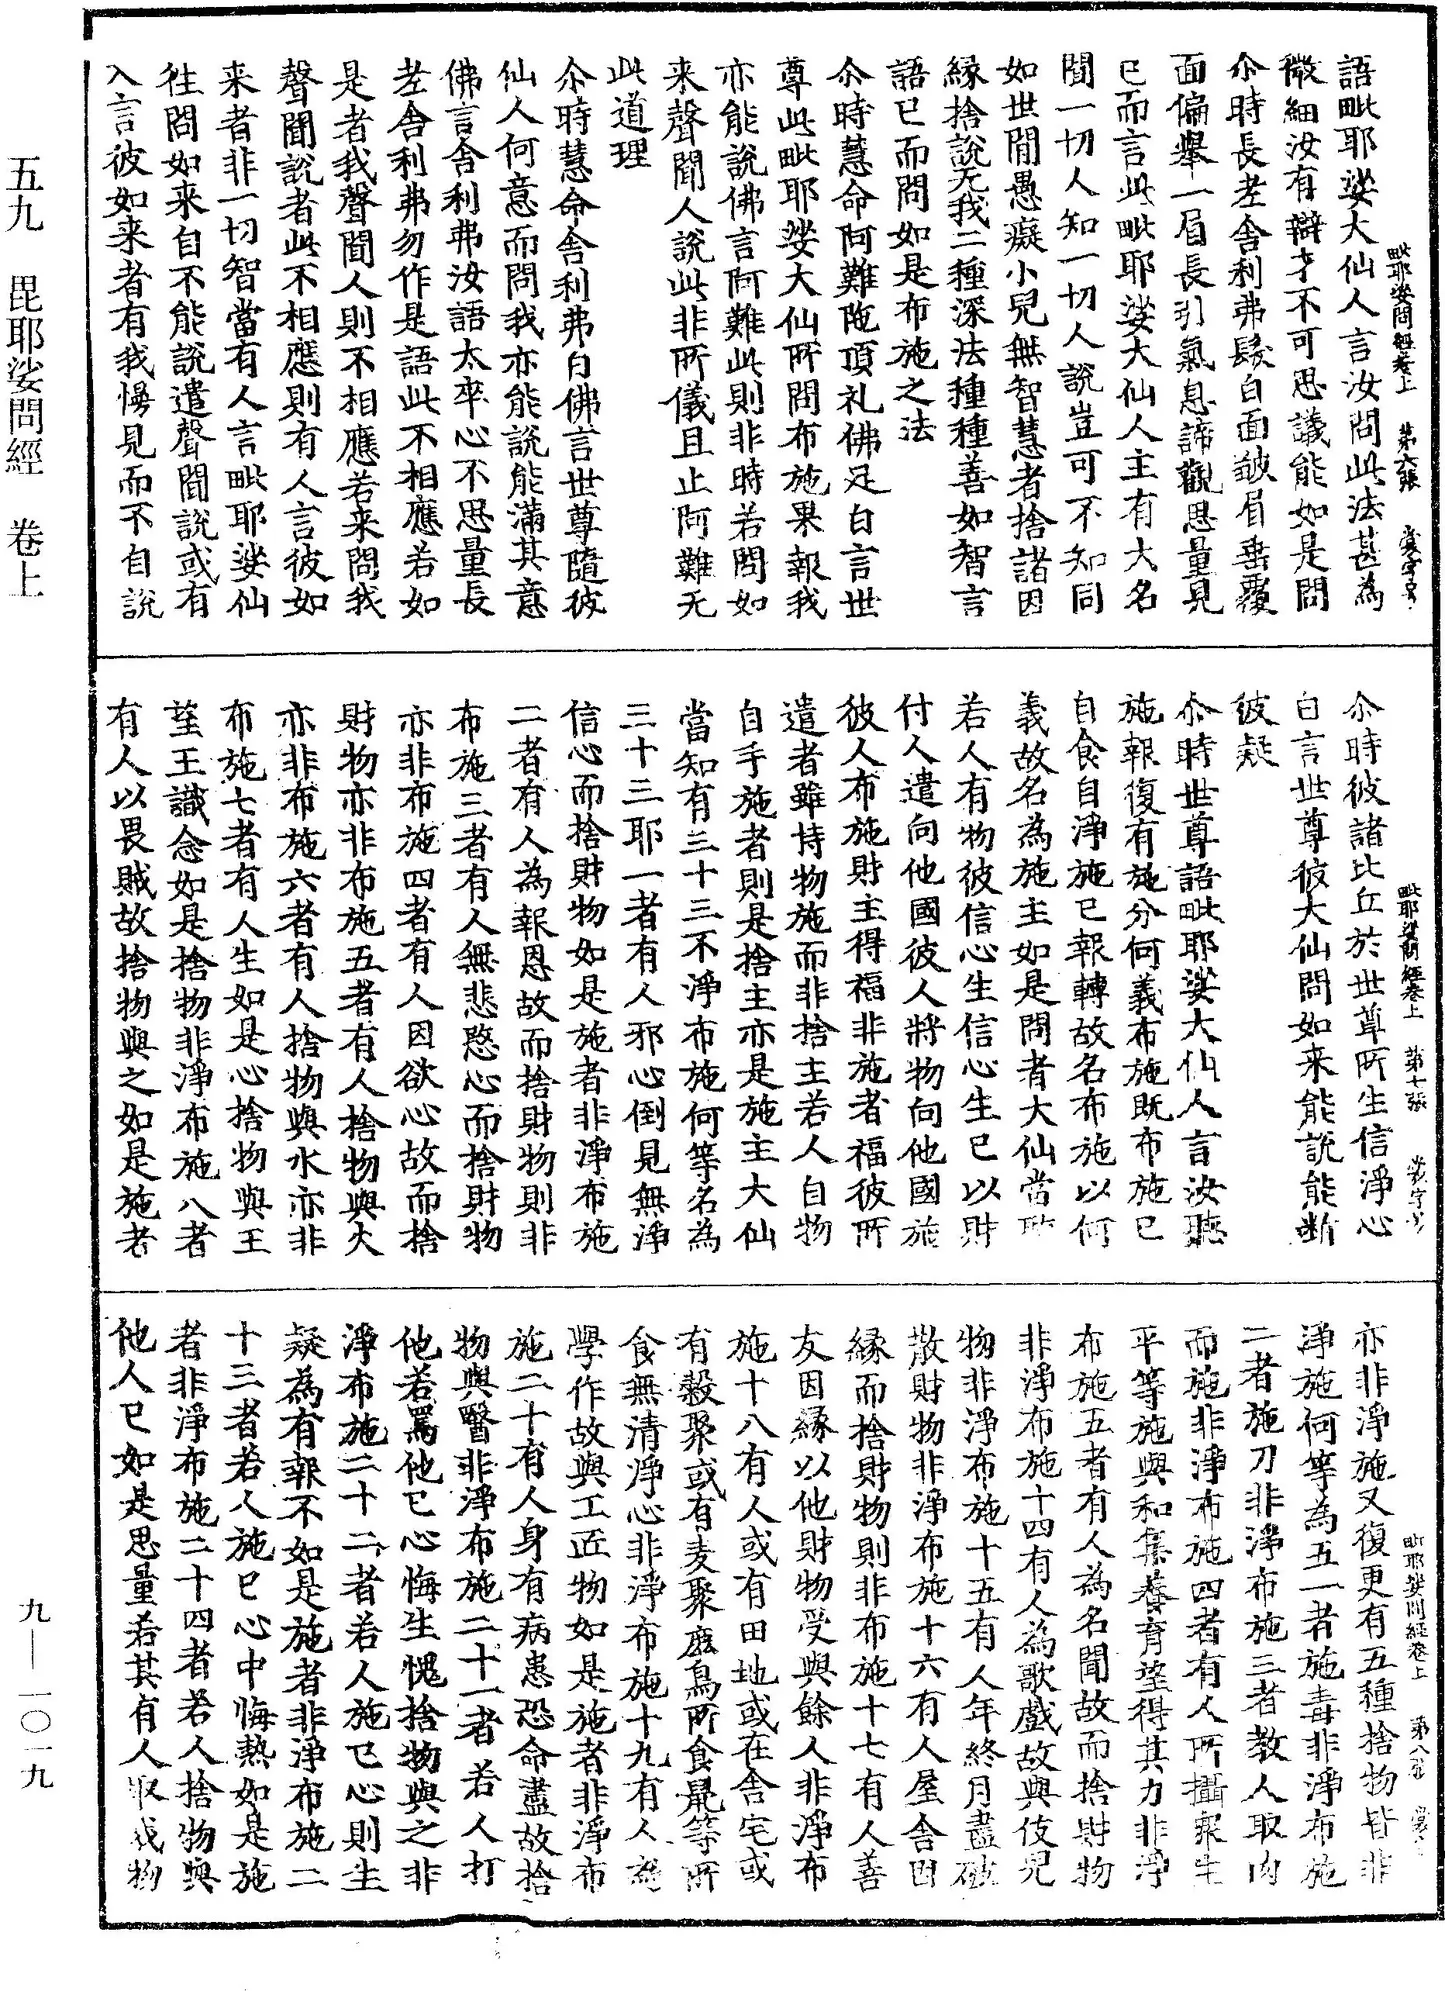 語毗耶娑大仙人言汝問此法甚為
微細汝有辯才不可思議能如是問
尒時長老舍利弗鬚白面皺眉垂覆
面偏舉一眉長引氣息諦觀思量見
已而言此毗耶娑大仙人主有大名
聞一切人知一切人說豈可不知同
如世閒愚癡小兒無智慧者捨諸因
緣捨說无我二種深法種種善如智言
語已而問如是布施之法
尒時慧命阿難陁頂礼佛足白言世
尊此毗耶娑大仙所問布施果報我
亦能說佛言阿難此則非時若問如
来聲聞人說此非所儀且止阿難无
此道理
尒時慧命舍利弗白佛言世尊隨彼
仙人何意而問我亦能說能滿其意
佛言舍利弗汝語太卒心不思量長
老舍利弗勿作是語此不相應若如
是者我聲聞人則不相應若来問我
聲聞說者此不相應則有人言彼如
来者非一切智當有人言毗耶娑仙
往問如来自不能說遣聲聞說或有
人言彼如来者有我慢見而不自說
毗耶娑問經卷上 第六張
尒時彼諸比丘於世尊所生信淨心
白言世尊彼大仙問如来能說能斷
彼疑
尒時世尊語毗耶娑大仙人言汝聽
施報復有施分何義布施既布施已
自食自淨施已報轉故名布施以何
義故名為施主如是問者大仙當聽
若人有物彼信心生信心生已以財
付人遣向他國彼人將物向他國施
彼人布施財主得福非施者福彼所
遣者雖持物施而非捨主若人自物
自手施者則是捨主亦是施主大仙
當知有三十三不淨布施何等名為
三十三耶一者有人邪心倒見無淨
信心而捨財物如是施者非淨布施
二者有人為報恩故而捨財物則非
布施三者有人無悲愍心而捨財物
亦非布施四者有人因欲心故而捨
財物亦非布施五者有人捨物與火
亦非布施六者有人捨物與水亦非
布施七者有人生如是心捨物與王
望王識念如是捨物非淨布施八者
有人以畏賊故捨物與之如是施者
毗耶娑問經卷上 第七張
亦非淨施又復更有五種捨物皆非
淨施何等為五一者施毒非淨布施
二者施刀非淨布施三者教人取肉
而施非淨布施四者有人所攝眾生
平等施與和集養育望得其力非淨
布施五者有人為名聞故而捨財物
非淨布施十四有人為歌戲故與伎兒
物非淨布施十五有人年終月盡破
散財物非淨布施十六有人屋舍因
緣而捨財物則非布施十七有人善
友因緣以他財物受與餘人非淨布
施十八有人或有田地或在舍宅或
有穀聚或有麦聚麽鳥所食鼠等所
食無清淨心非淨布施十九有人為
學作故與工匠物如是施者非淨布
施二十有人身有病患恐命盡故捨
物與醫非淨布施二十一者若人打
他若罵他已心悔生愧捨物與之非
淨布施二十二者若人施已心則生
疑為有報不如是施者非淨布施二
十三者若人施已心中悔熱如是施
者非淨布施二十四者若人捨物與
他人已如是思量若其有人取我物
毗耶娑問經卷上 第八張
五九 毘耶娑問經 卷上
九—一〇一九